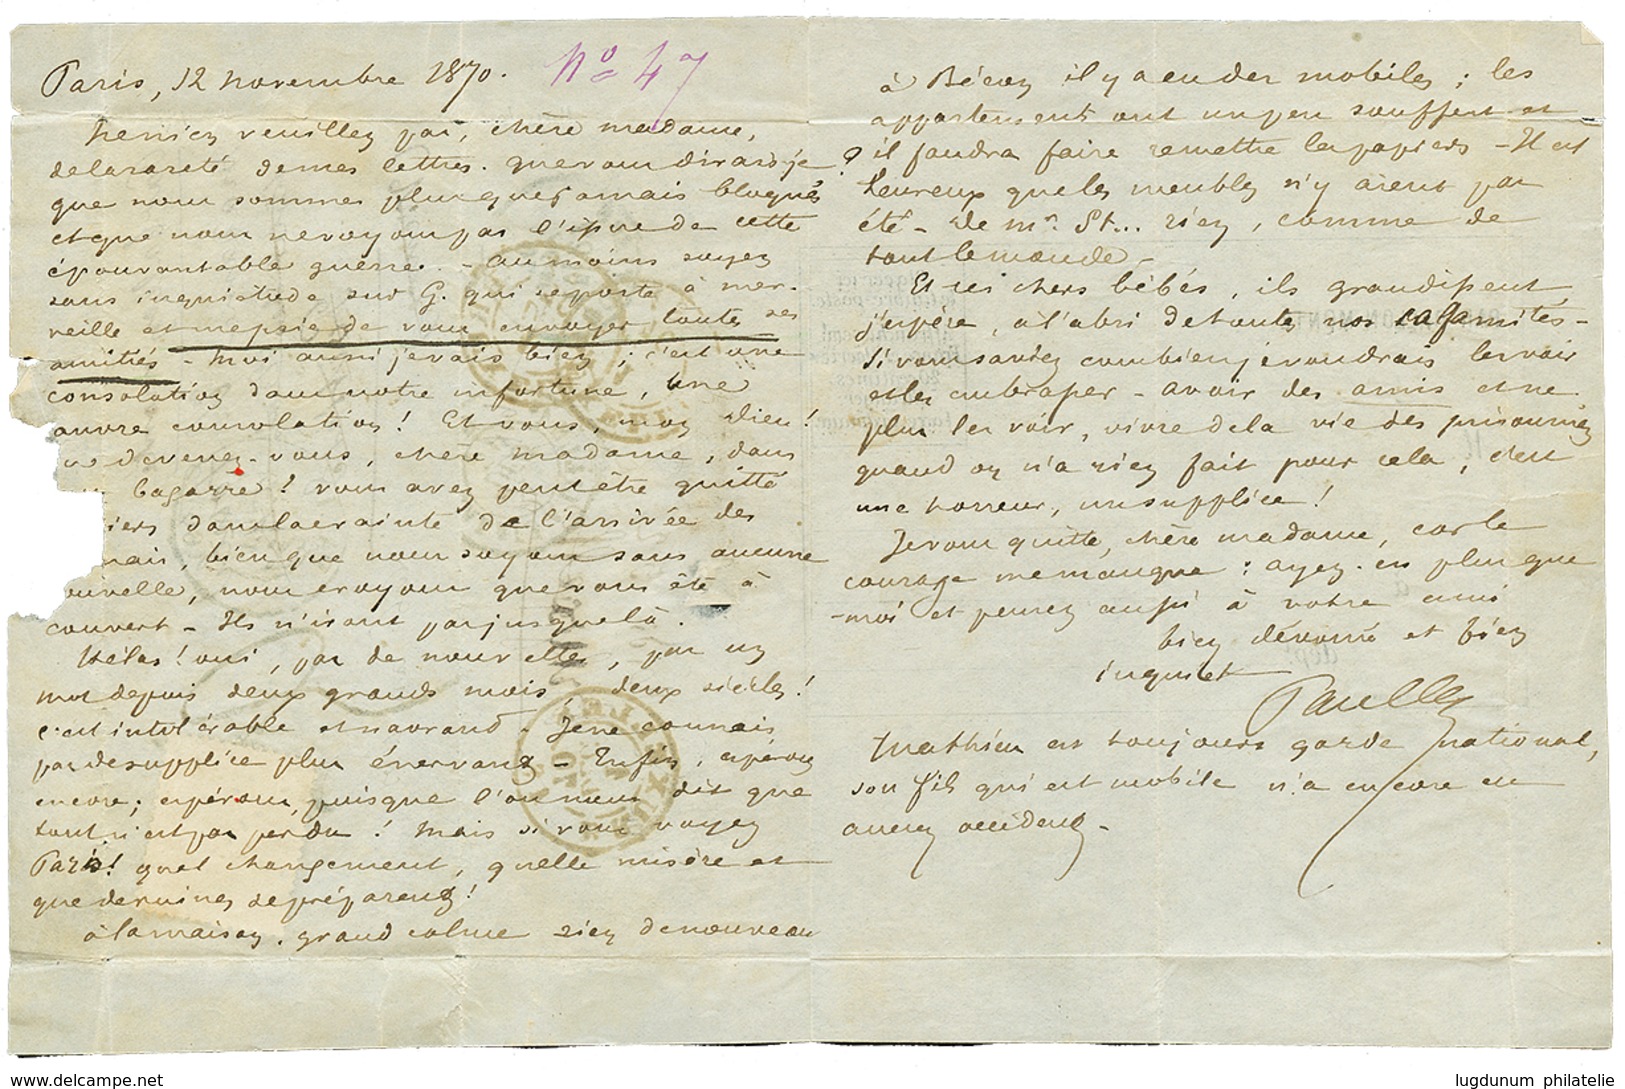 Paris, 12 novembre 1870. No 47
n'en veuillez pas, chère madame,
de la rareté de mes lettres. que vous dirais-je
que nous sommes plus que jamais bloqués
et que nous ne voyons pas l'issue de cette
épouvantable guerre. - au moins soyez
sans inquiétude sur G. qui se porte à mer-
veille et me prie de vous envoyer toutes ses
amitiés - moi aussi je vais bien ; c'est une
consolation dans notre infortune, une
auvre consolation ! Et vous, mon Dieu !
devenez-vous, chère madame, dans
bagarre ! vous avez peut être quitté
iers dans la crainte de l'arrivée des
mais, bien que nous soyons sans aucune
ouvelle, nous croyons que vous êtes à
couvert - Ils n'iront pas jusque là.
Hélas ! oui, pas de nouvelles, pas un
mot depuis deux grands mois, deux siècles !
c'est intolérable et navrant. Je ne connais
pas de supplice plus énervant - Enfin, espérons
encore ; espérons, puisque l'on nous dit que
tout n'est pas perdu ! mais si vous voyez
Paris ! quel changement, quelle misère et
que de ruines se préparent !
à la maison, grand calme rien de nouveau
à Bécon il y a eu des mobiles ; les
appartements ont un peu souffert et
? il faudra faire remettre les papiers - Il est
heureux que les meubles n'y aient pas
été - De Mr. St... rien, comme de
tout le monde -
Et ces chers bébés, ils grandissent,
j'espère, à l'abri de toutes nos calamités -
Si vous saviez combien je voudrais les voir
et les embrasser - avoir des amis et ne
plus les voir, vivre de la vie des prisonniers
quand on n'a rien fait pour cela, c'est
une horreur, un supplice !
Je vous quitte, chère madame, car le
courage me manque : ayez-en plus que
-moi et pensez aussi à votre ami
bien dévoué et bien
inquiet
Mathieu est toujours garde national,
son fils qui est mobile n'a encore eu
aucun accident -
www.delcampe.net
lugdunum philatelie